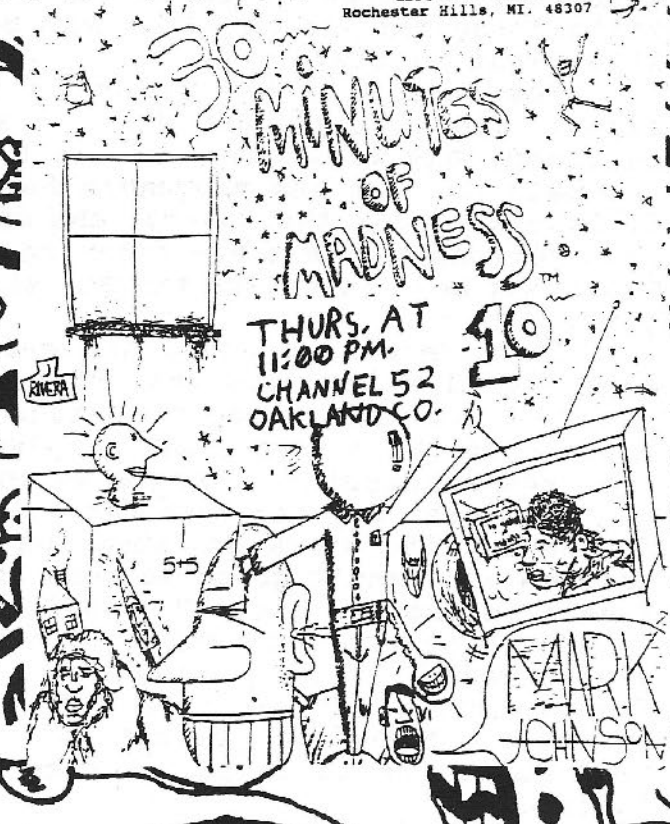 Rochester Hills, MI. 48307
30
MINUTES
OF
MADNESS™
10
THURS. AT
11:00 PM.
CHANNEL 52
OAKLAND CO.
J RIVERA
5+5
MARK
JOHNSON